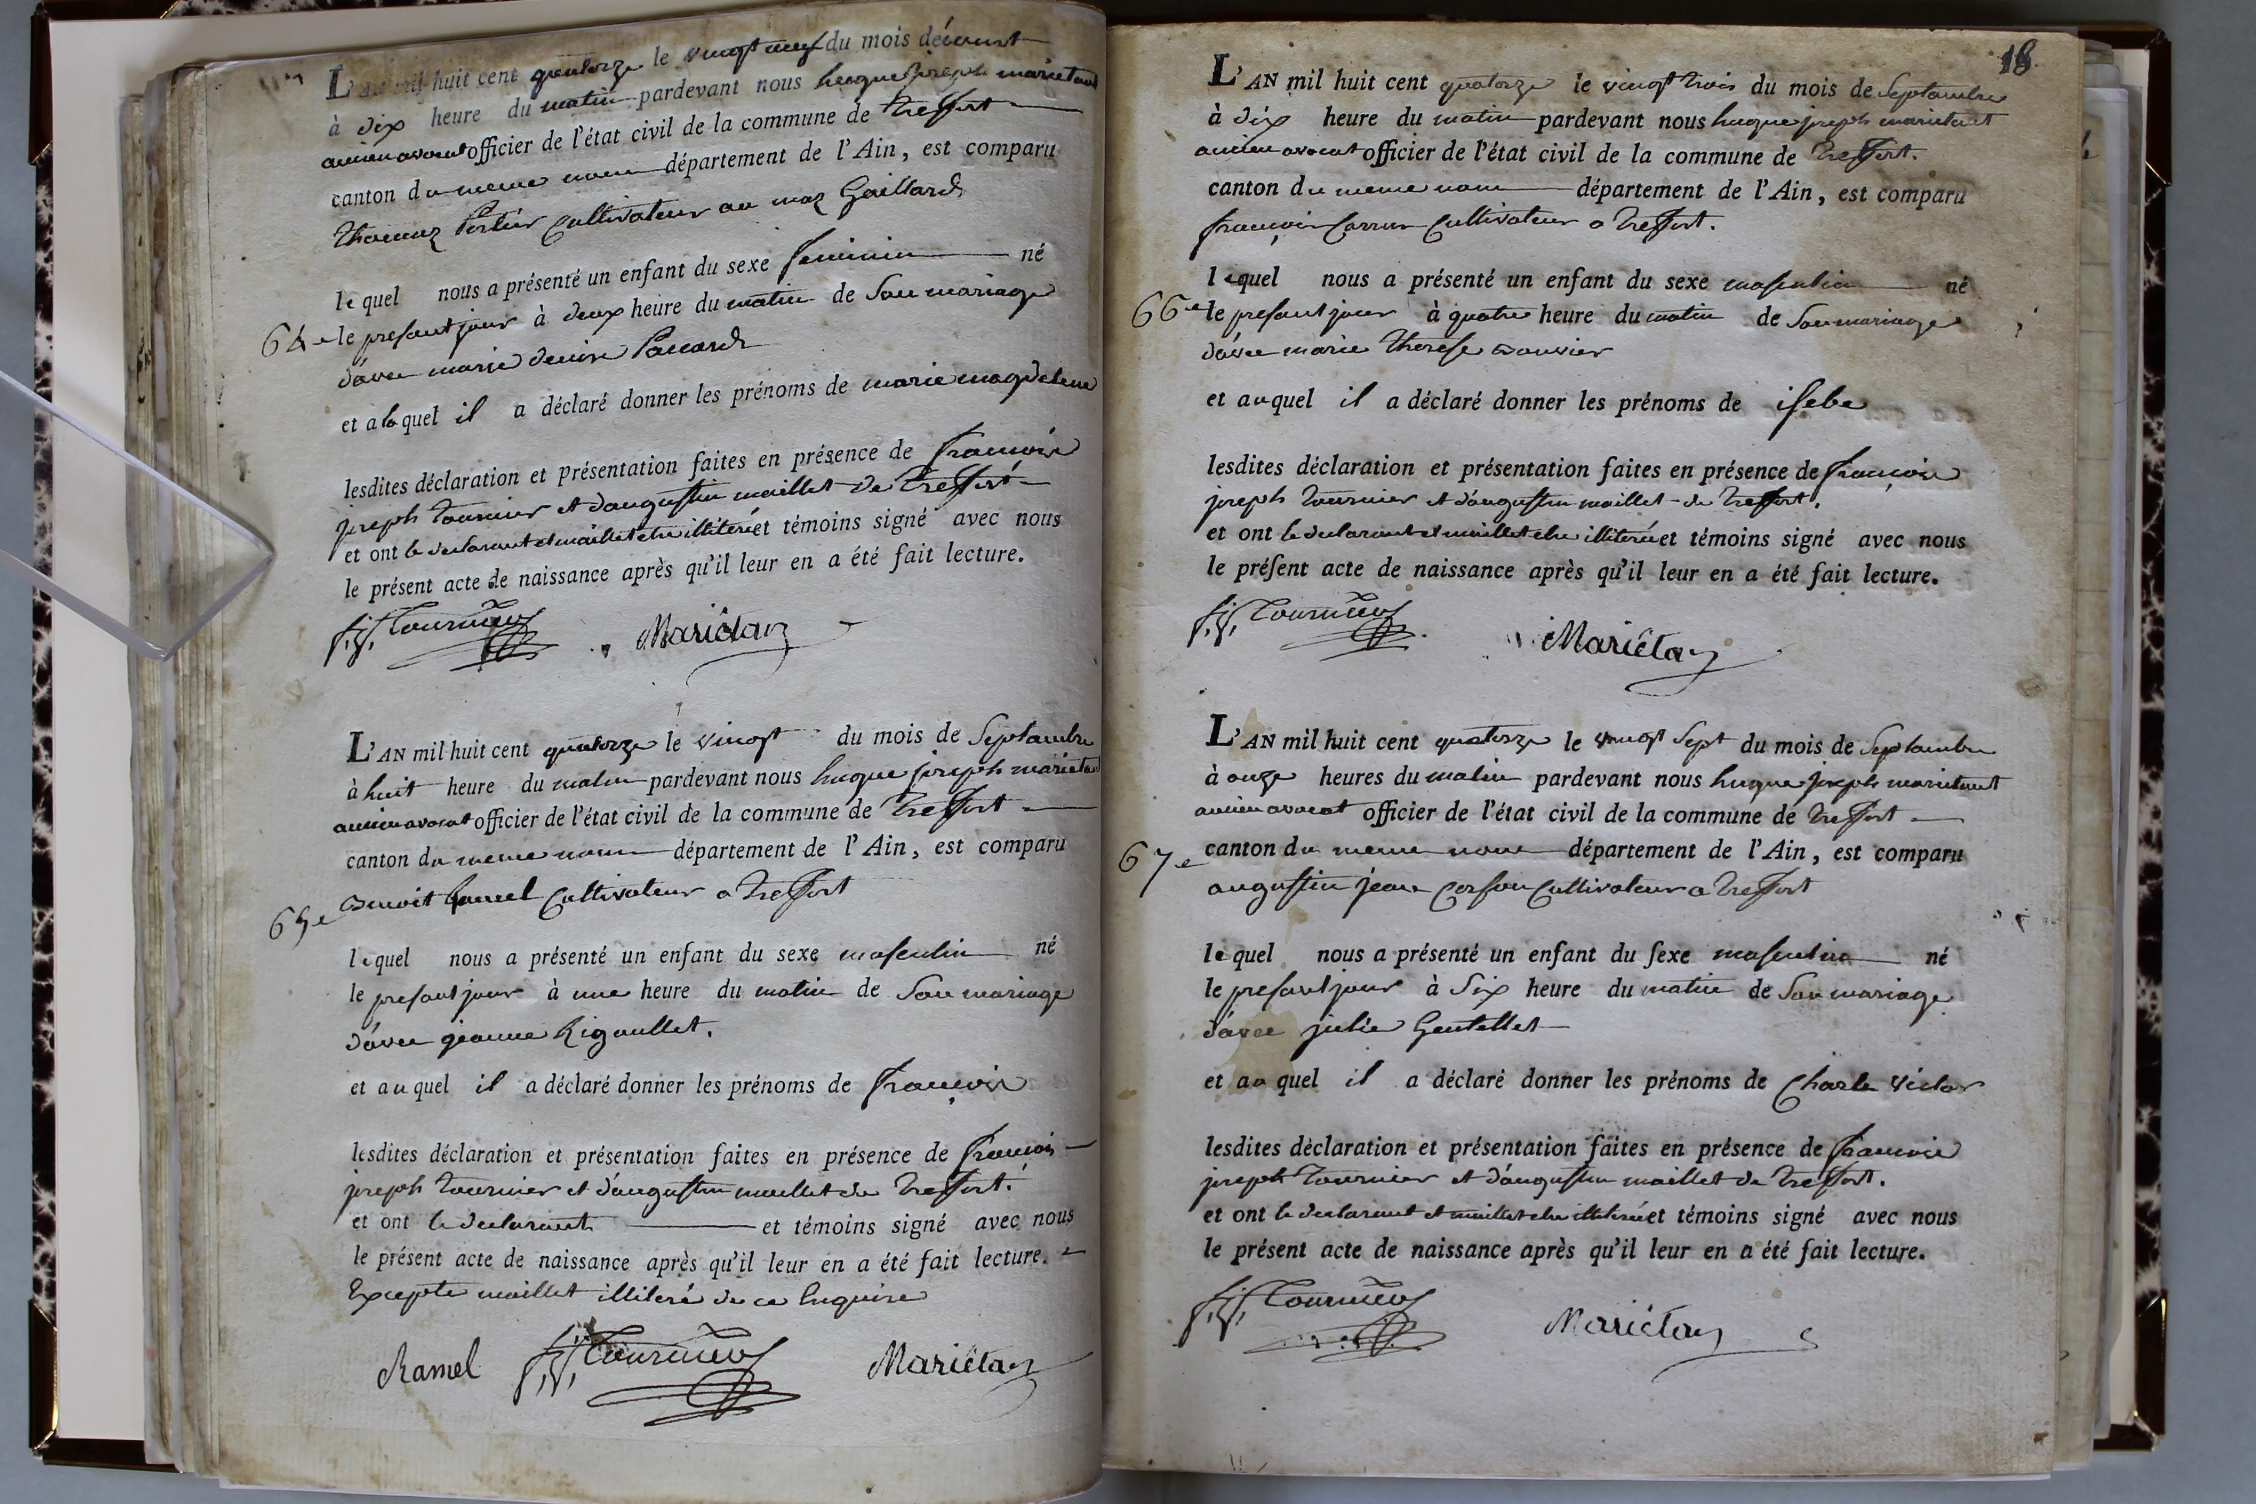 L'AN mil huit cent quatorze le vingt neuf du mois d'écourt
à dix heure du matin pardevant nous hugue joseph marietant
ancien avocat officier de l'état civil de la commune de treffort
canton du meme nom département de l'Ain, est comparu
thomaz Portier Cultivateur au maz Gaillard
lequel nous a présenté un enfant du sexe feminin né
64e le present jour à deux heure du matin de Son mariage
d'avec marie denise Paccard
et a laquel il a déclaré donner les prénoms de marie magdelene
lesdites déclaration et présentation faites en présence de françois
joseph tournier et d'augustin maillet de treffort
et ont le declarant et maillet etre illiteré et témoins signé avec nous
le présent acte de naissance après qu'il leur en a été fait lecture.
f, j, Tournier Mariétan
L'AN mil huit cent quatorze le vingt du mois de Septambre
à huit heure du matin pardevant nous hugue joseph marietant
ancien avocat officier de l'état civil de la commune de treffort
canton du meme nom département de l'Ain, est comparu
65e Benoit Ramel Cultivateur a treffort
lequel nous a présenté un enfant du sexe masculin né
le present jour à une heure du matin de Son mariage
d'avec jeanne Rigaullet.
et au quel il a déclaré donner les prénoms de françois
lesdites déclaration et présentation faites en présence de françois
joseph tournier et d'augustin maillet de treffort.
et ont le declarant et témoins signé avec nous
le présent acte de naissance après qu'il leur en a été fait lecture.
Excepté maillet illiteré de ce Enquise
Ramel f, j, Tournier Mariétan
18
L'AN mil huit cent quatorze le vingt trois du mois de Septambre
à dix heure du matin pardevant nous hugue joseph marietant
ancien avocat officier de l'état civil de la commune de treffort.
canton du meme nom département de l'Ain, est comparu
françois Carrus Cultivateur a treffort.
lequel nous a présenté un enfant du sexe masculin né
66e le present jour à quatre heure du matin de Son mariage
d'avec marie therese Bouvier
et auquel il a déclaré donner les prénoms de isebe
lesdites déclaration et présentation faites en présence de françois
joseph tournier et d'augustin maillet de treffort.
et ont le declarant et maillet etre illiteré et témoins signé avec nous
le préſent acte de naissance après qu'il leur en a été fait lecture.
f, j, Tournier Mariétan
L'AN mil huit cent quatorze le vingt Sept du mois de Septambre
à onze heures du matin pardevant nous hugue joseph marietant
ancien avocat officier de l'état civil de la commune de treffort
67e canton du meme nom département de l'Ain, est comparu
augustin jean Corson Cultivateur a treffort
lequel nous a présenté un enfant du ſexe masculin né
le present jour à Six heure du matin de Son mariage
d'avec julie Gentellet
et au quel il a déclaré donner les prénoms de Charle victor
lesdites déclaration et présentation faites en présence de françois
joseph tournier et d'augustin maillet de treffort.
et ont le declarant et maillet etre illiteré et témoins signé avec nous
le présent acte de naissance après qu'il leur en a été fait lecture.
f, j, Tournier Mariétan